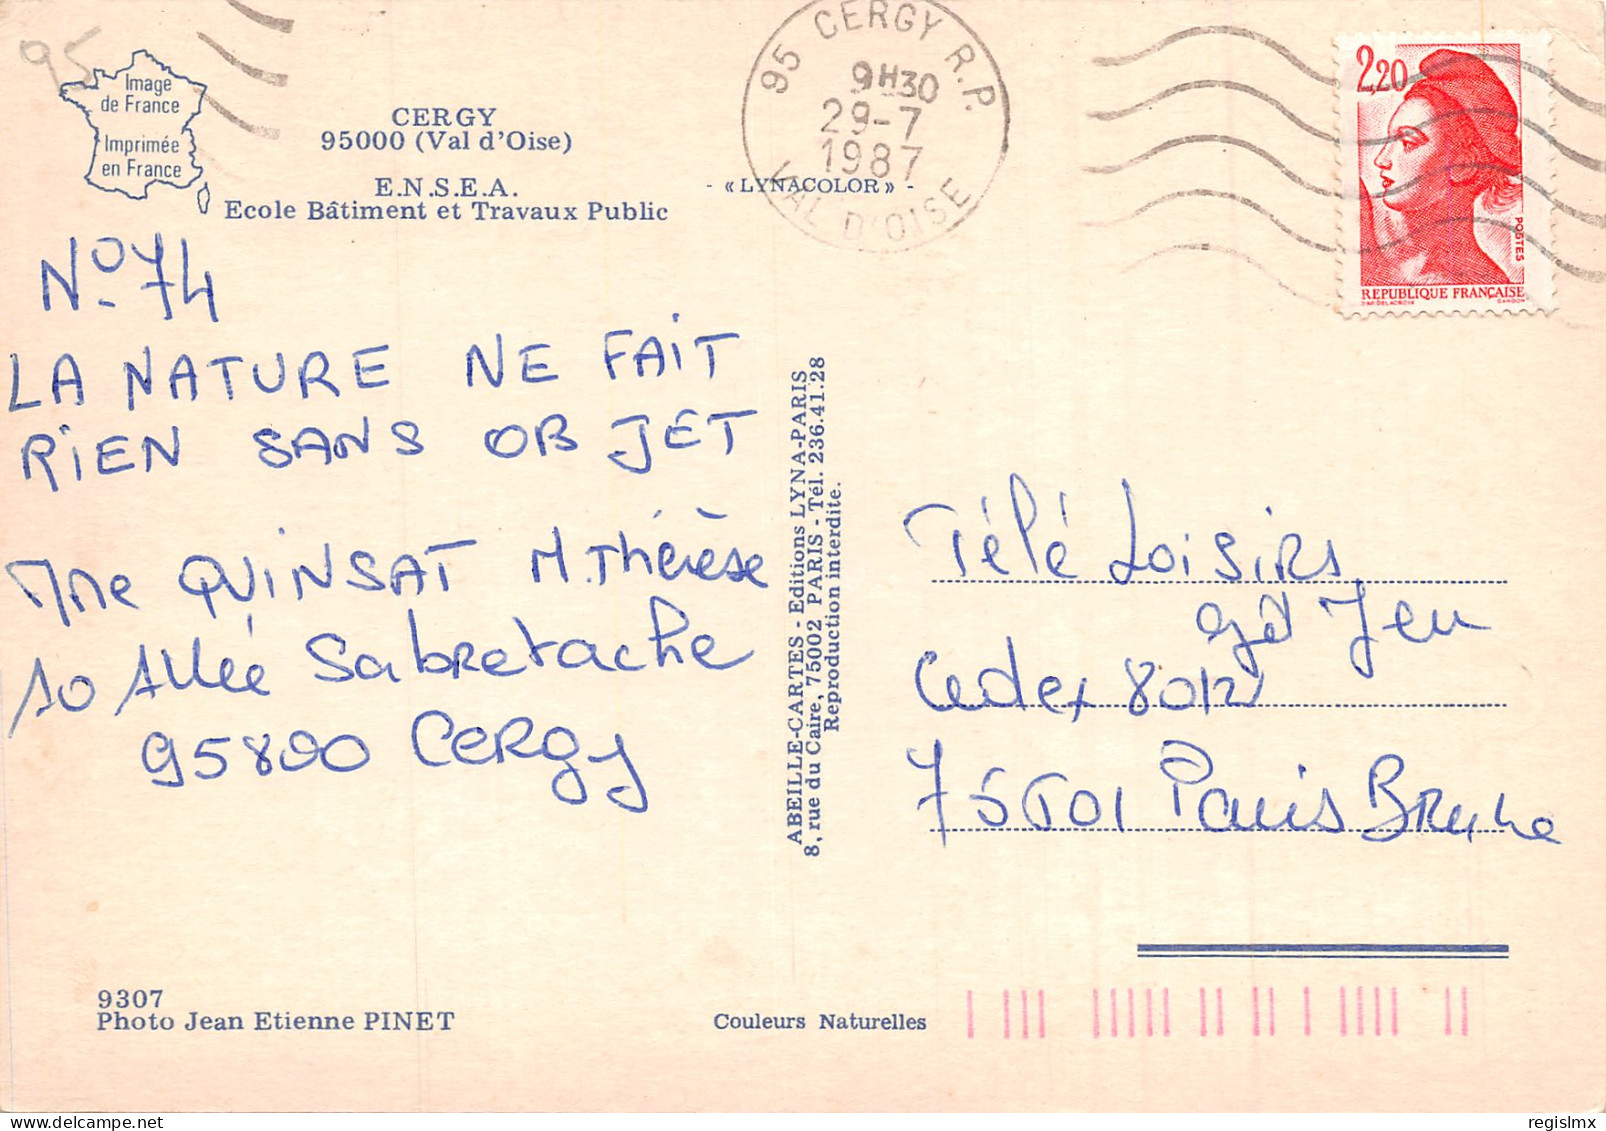 95
Image
de France
Imprimée
en France
CERGY
95000 (Val d'Oise)
E.N.S.E.A.
Ecole Bâtiment et Travaux Public
- « LYNACOLOR » -
95 CERGY R.P.
9H30
29-7
1987
VAL D'OISE
2,20
POSTES
REPUBLIQUE FRANÇAISE
D'AP. DELACROIX GANDON
No. 74
LA NATURE NE FAIT
RIEN SANS OBJET
Mme QUINSAT M.Thérèse
10 Allée Sabretache
95800 Cergy
ABEILLE-CARTES - Editions LYNA-PARIS
8, rue du Caire, 75002 PARIS - Tél. 236.41.28
Reproduction interdite.
Télé Loisirs
gd Jeu
Cedex 8012
75601 Paris Brune
9307
Photo Jean Etienne PINET
Couleurs Naturelles
regislmx